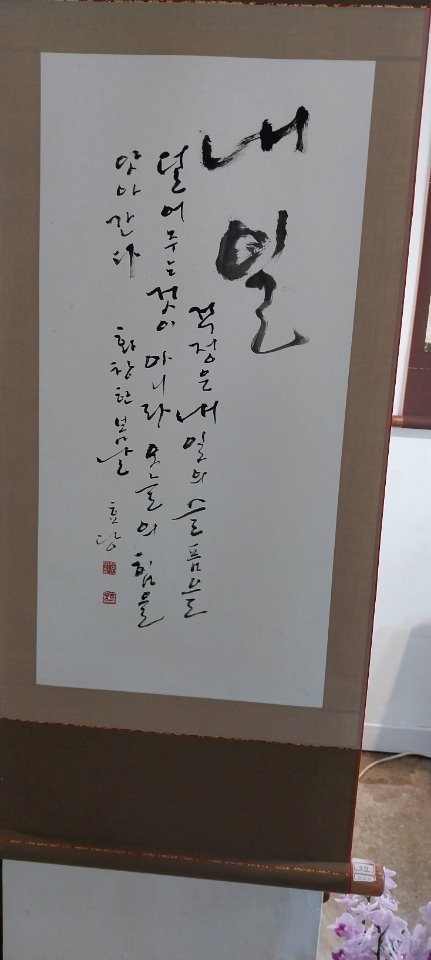 내일
걱정은 내일의 슬픔을
덜어주는 것이 아니라 오늘의 힘을
앗아간다 화창한 봄날 효당